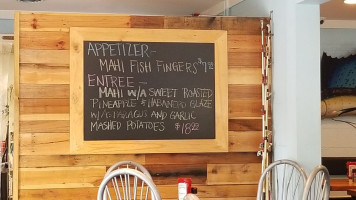 APPETIZER-
MAHI FISH FINGERS $7.00
ENTREE-
MAHI W/A SWEET ROASTED
PINEAPPLE & HABANERO GLAZE
W/ASPARAGUS AND GARLIC
MASHED POTATOES $18.00